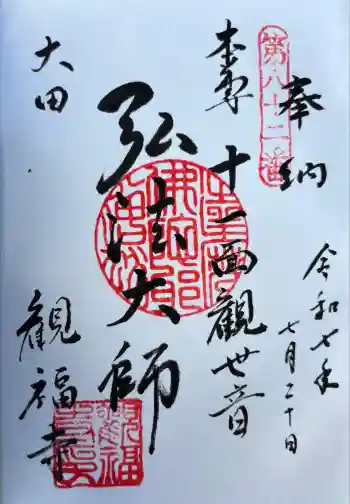 奉納
第八十二番
令和七年
七月二十日
本尊
十一面観世音
弘法大師
大田
観福寺